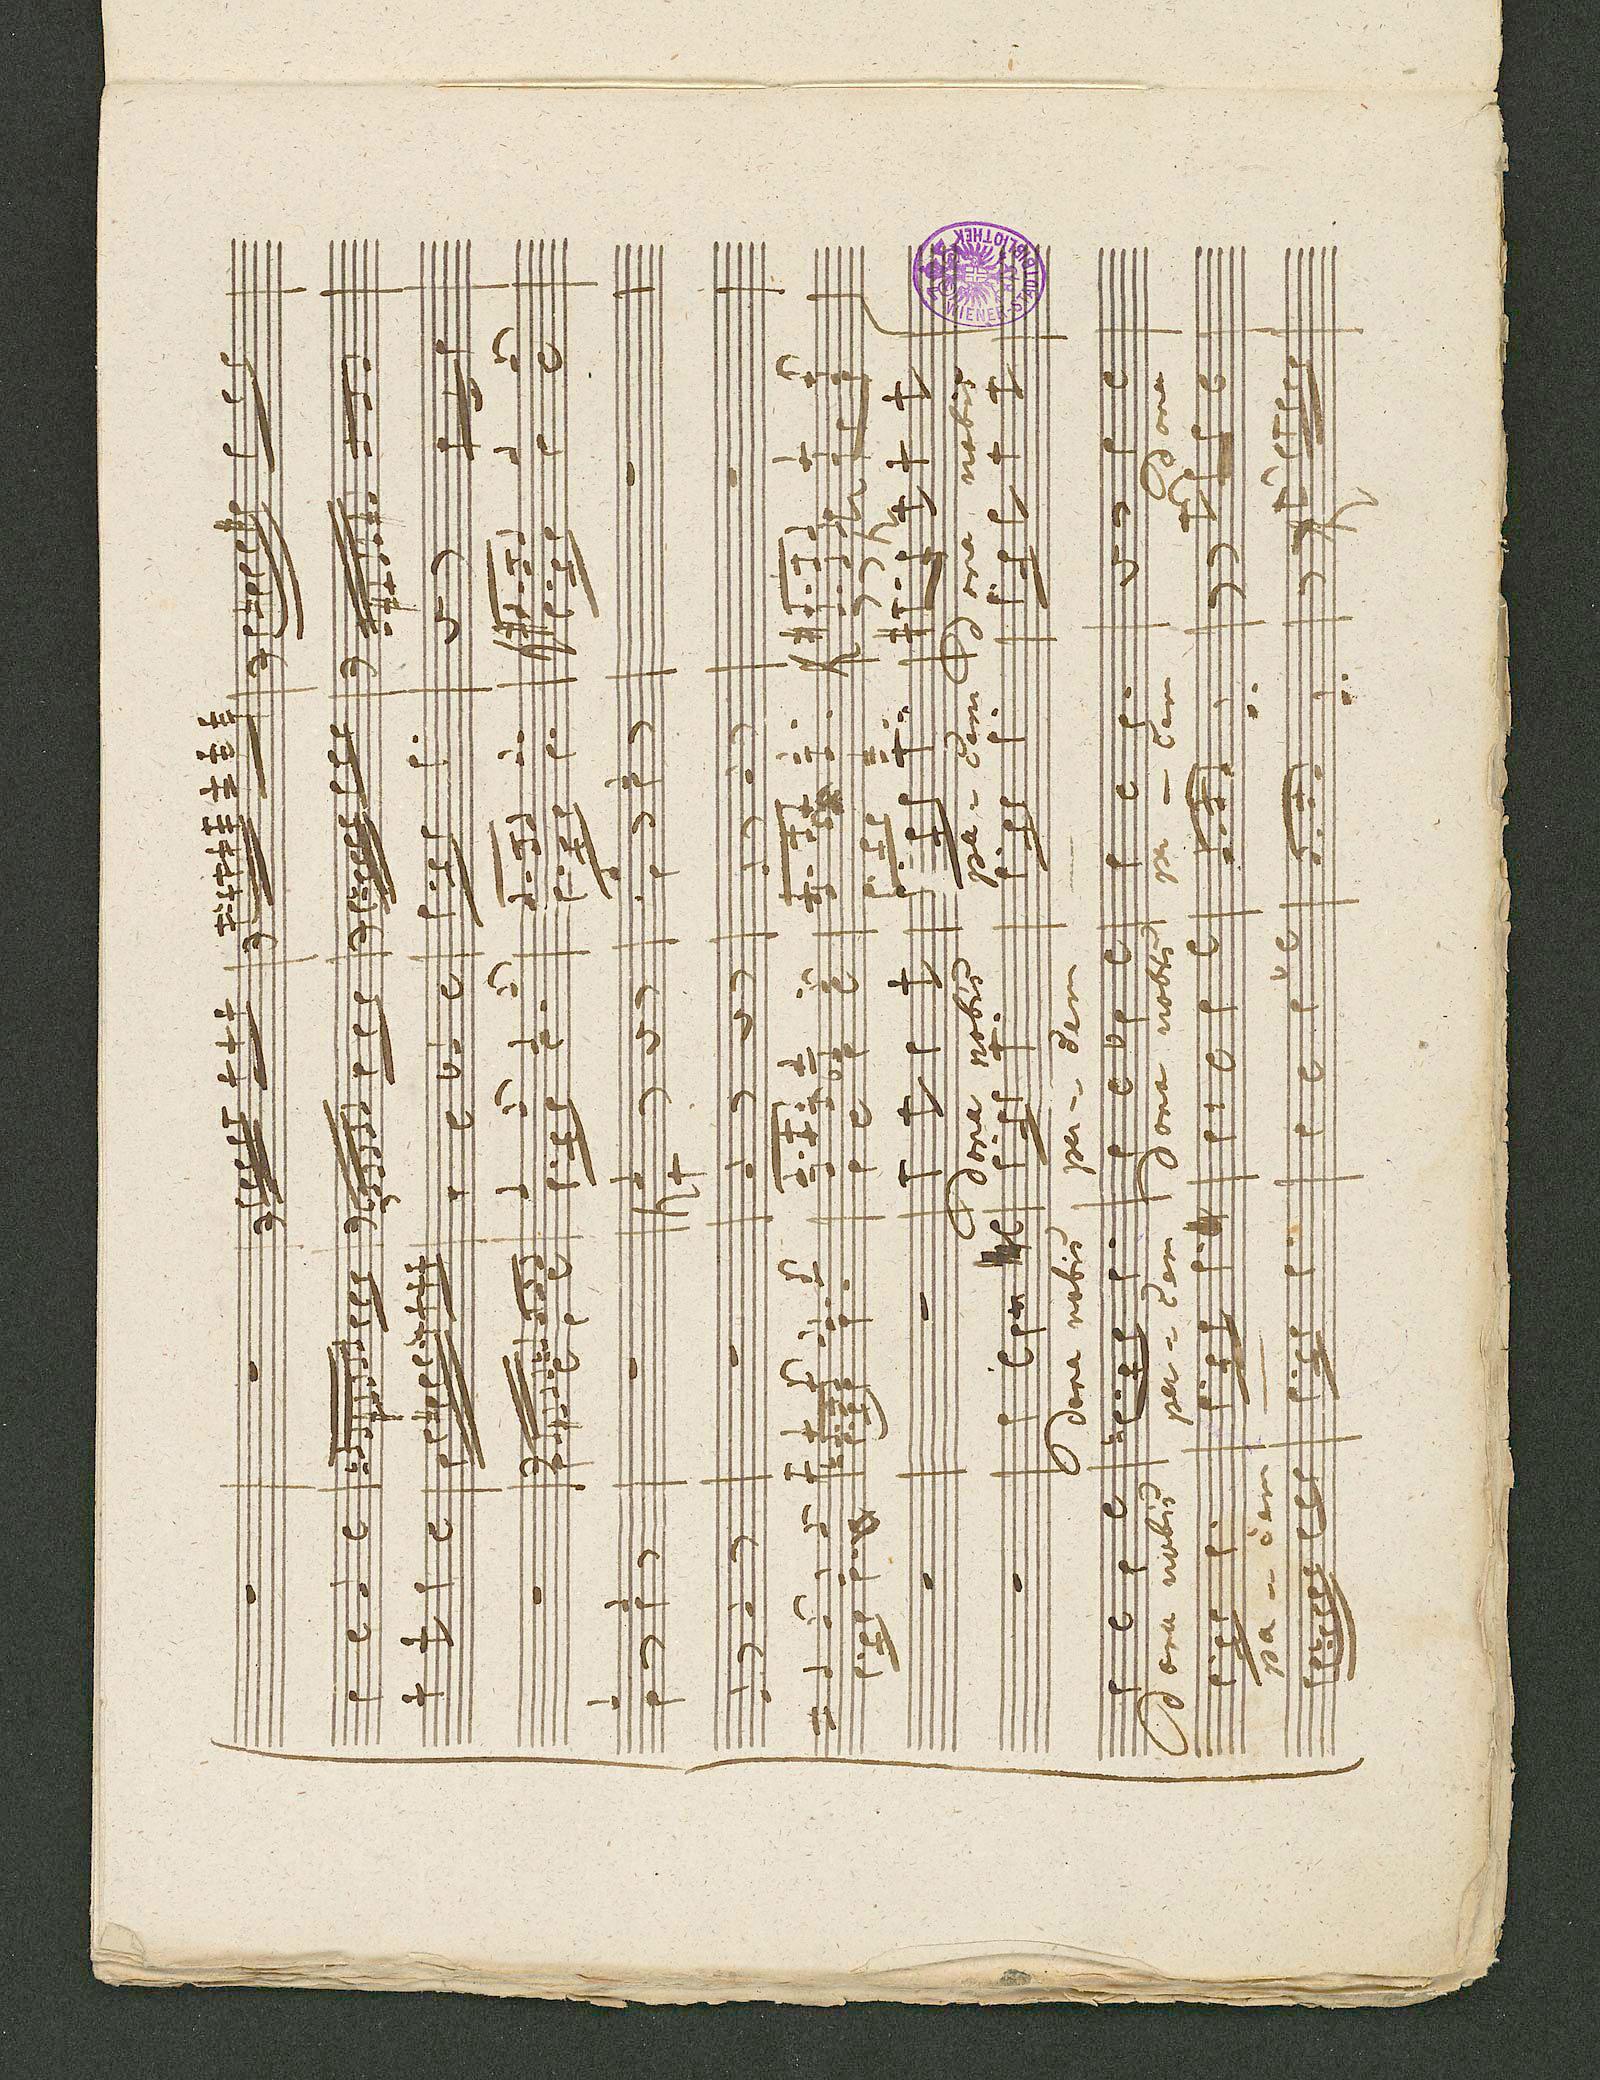 Dona nobis pa - cem Dona nobis
Dona nobis pa - cem
Dona nobis pa - cem Dona nobis pa - cem Dona
pa - cem
WIENER-STADTBIBLIOTHEK